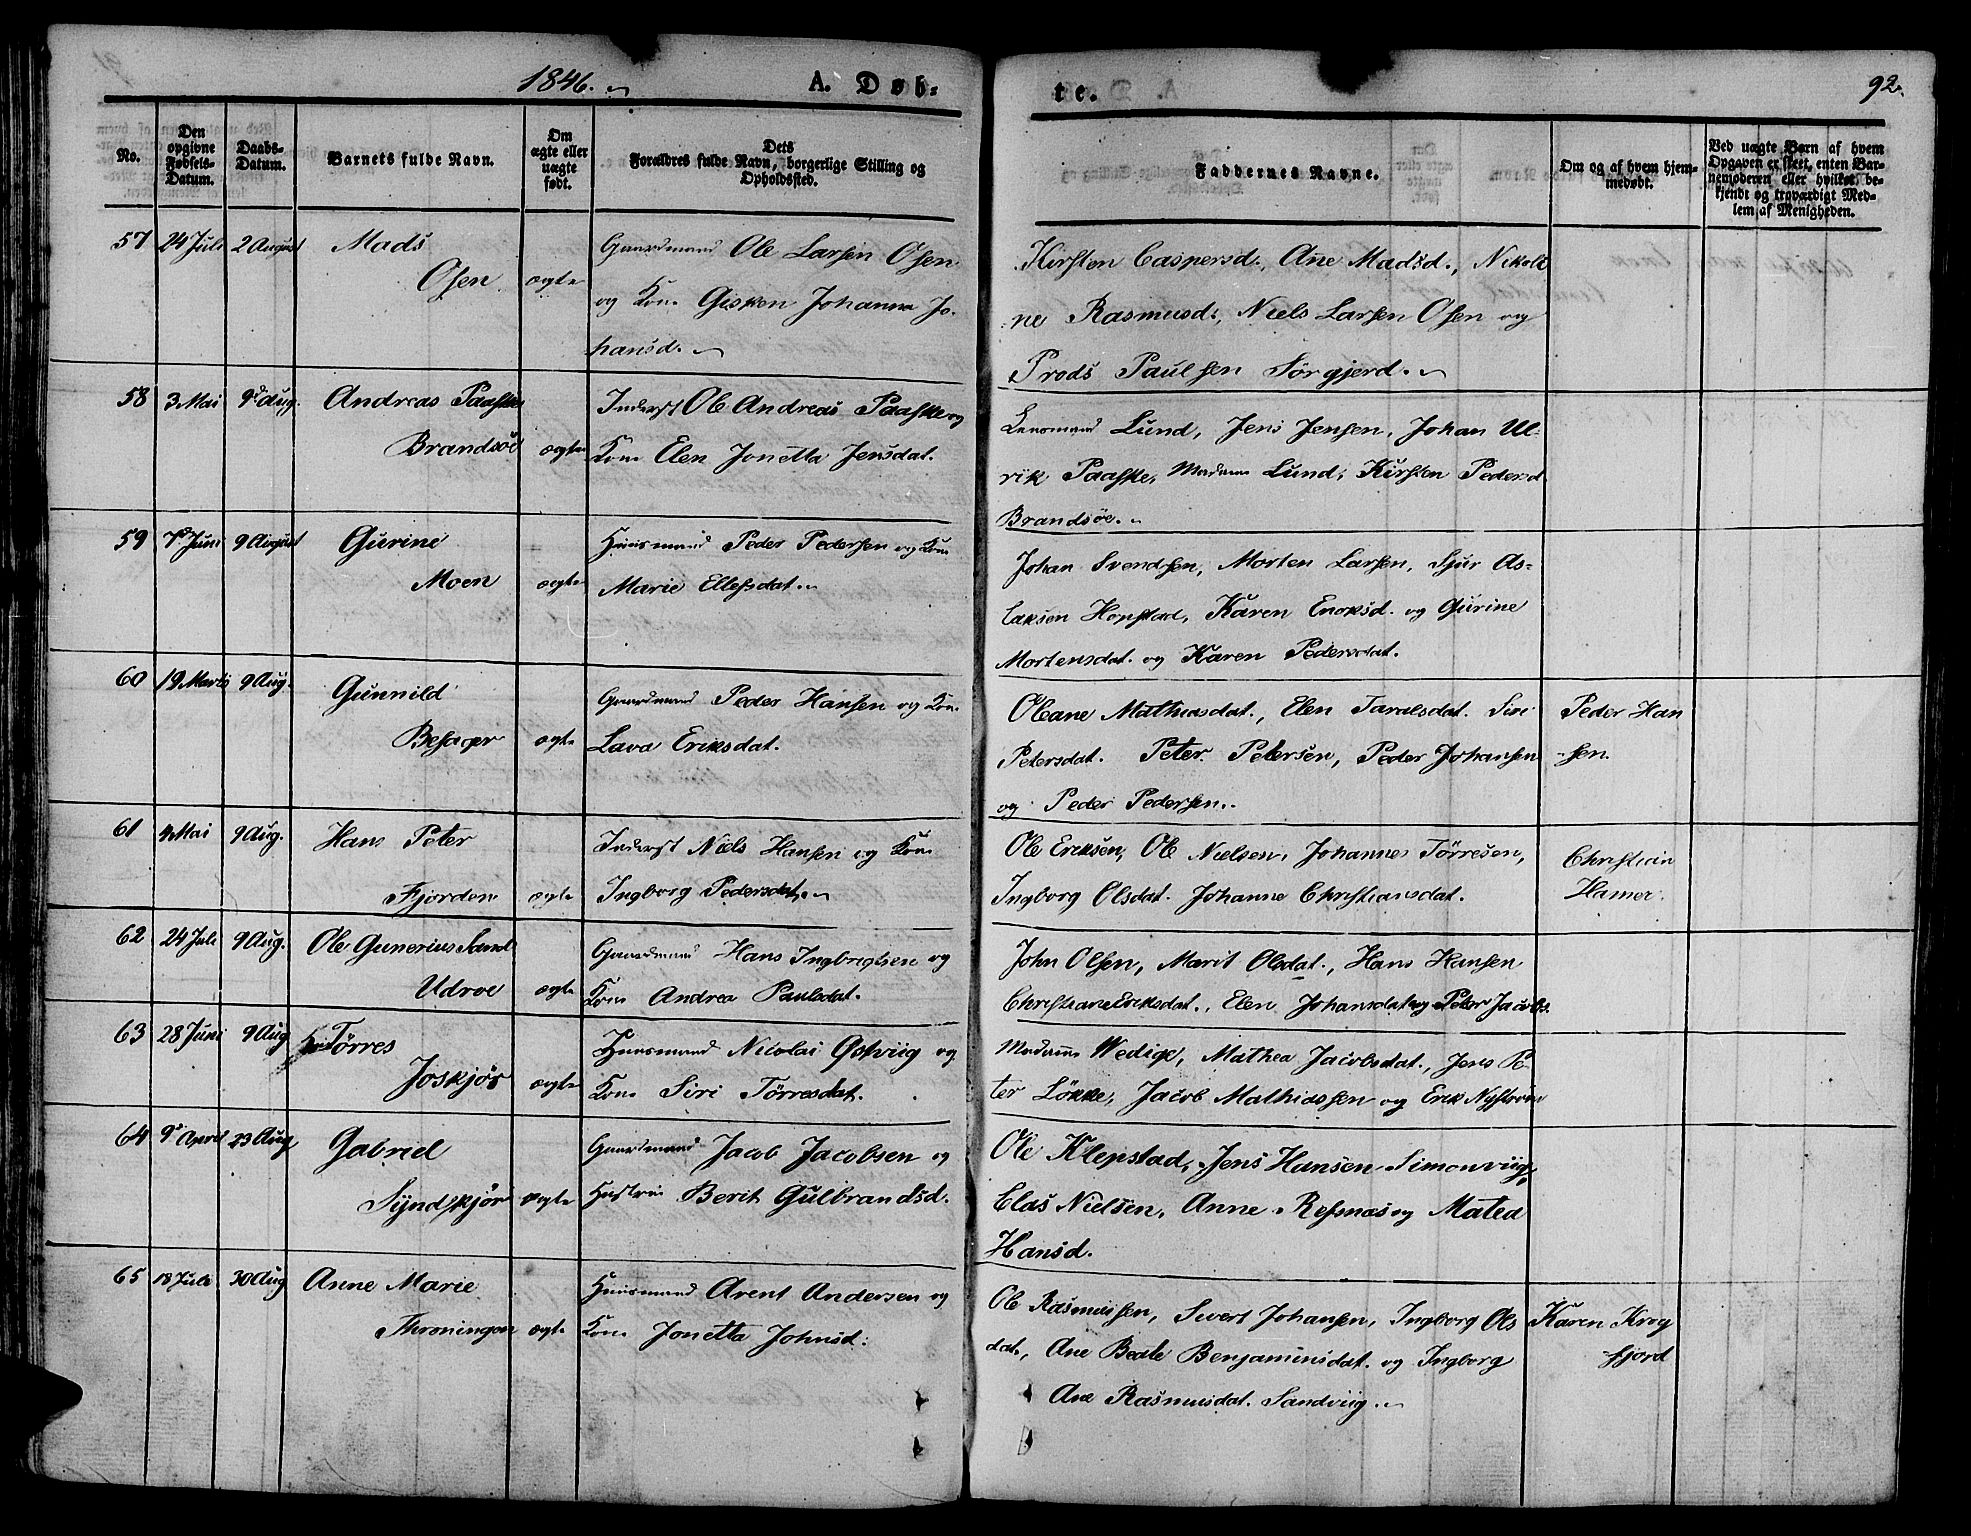 1846. A. Døb-
te. 92.
No.
Den opgivne Fødsels-Datum.
Daabs-Datum.
Barnets fulde Navn.
Om ægte eller uægte født.
Dets Forældres fulde Navn, borgerlige Stilling og Opholdssted.
Faddernes Navne.
Om og af hvem hjem-
medøbt.
Ved uægte Barn af hvem
Opgaven er skeet, enten Bar-
nemoderen eller hvilket be-
kjendt og troværdigt Med-
lem af Menigheden.
57 24 Juli 2 August Mads Gaardmand Ole Larsen Osen
Osen ægte og Kone Gisken Johanna Jo-
hansd.
Kirsten Caspersd., Ane Madsd., Nikoli
ne Rasmusd., Niels Larsen Osen og
Paulsen Sørgjerd.
58 3 Mai 9d Aug. Andreas Paaske Inderst Ole Andreas Paaske og
Brandsøe ægte Kone Elen Jonetta Jensdat.
Lensmand Lund, Jens Jensen, Johan Ul-
rik Paaske, Madame Lund, Kirsten Pedersd
Brandsøe.
59 7d Juni 9 August Gurine Huusmand Peder Pedersen og Kone
Moen ægte Marie Ellefsdat.
Johan Svendsen, Morten Larsen, Sjur As-
laksen Hopstad, Karen Enoksd. og Gurine
Mortensdat. og Karen Pedersdat.
60 19 Marts 9 Aug. Gunnild Gaardmand Peder Hansen og Kone
Besager ægte Lava Eriksdat.
Oleane Mathiasdat., Elen Taralsdat. Siri
Petersdat. Peter Petersen, Peder Johansen
og Peder Pedersen.
Peder Han
-sen.
61 4 Mai 9 Aug. Hans Peter Inderst Niels Hansen og Kone
Fjorden ægte Ingborg Pedersdat.
Ole Eriksen, Ole Nielsen, Johannes Tørresen,
Ingborg Olsdat. Johanne Christiansdat.
Christian
Hamer.
62 24 Juli 9 Aug. Ole Gunerius Sand Gaardmand Hans Ingbrigtsen og
Udroe ægte Kone Andrea Paulsdat.
John Olsen, Marit Olsdat., Hans Hansen
Christiane Eriksdat., Elen Johansdat og Peter Jacobs.
63 28 Juni 9 Aug Tørres Huusmand Nicolai Ostviig og
Joskjør ægte Kone Siri Tørresdat.
Madame Wedige, Mathea Jacobsdat., Jens Pe
ter Løkke, Jacob Mathiassen og Erik Nystrøm
64 9d April 23 Aug Gabriel Gaardmand Jacob Jacobsen og
Syndskjør ægte Hustrue Berit Gulbrandsd.
Ole Klepstad, Jens Hansen Simonviig,
Clas Nielsen, Anne Refsnæs og Matea
Hansd.
65 18 Juli 30 Aug Anne Marie Huusmand Arent Andersen og
Throningen ægte Kone Jonetta Johnsd.
Ole Rasmussen, Sivert Johansen, Ingborg Ols
dat., Ane Beate Benjaminsdat. og Ingborg
Ane Rasmusdat. Sandviig.
Karen Krog
fjord